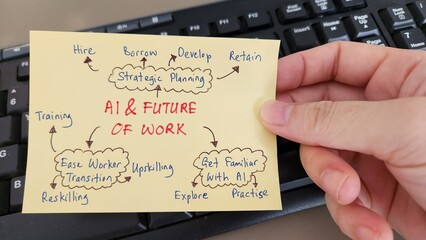 Hire
Borrow
Develop
Retain
Strategic Planning
AI & FUTURE
OF WORK
Training
Ease Worker
Transition
Upskilling
Reskilling
Get Familiar
With AI
Explore
Practise